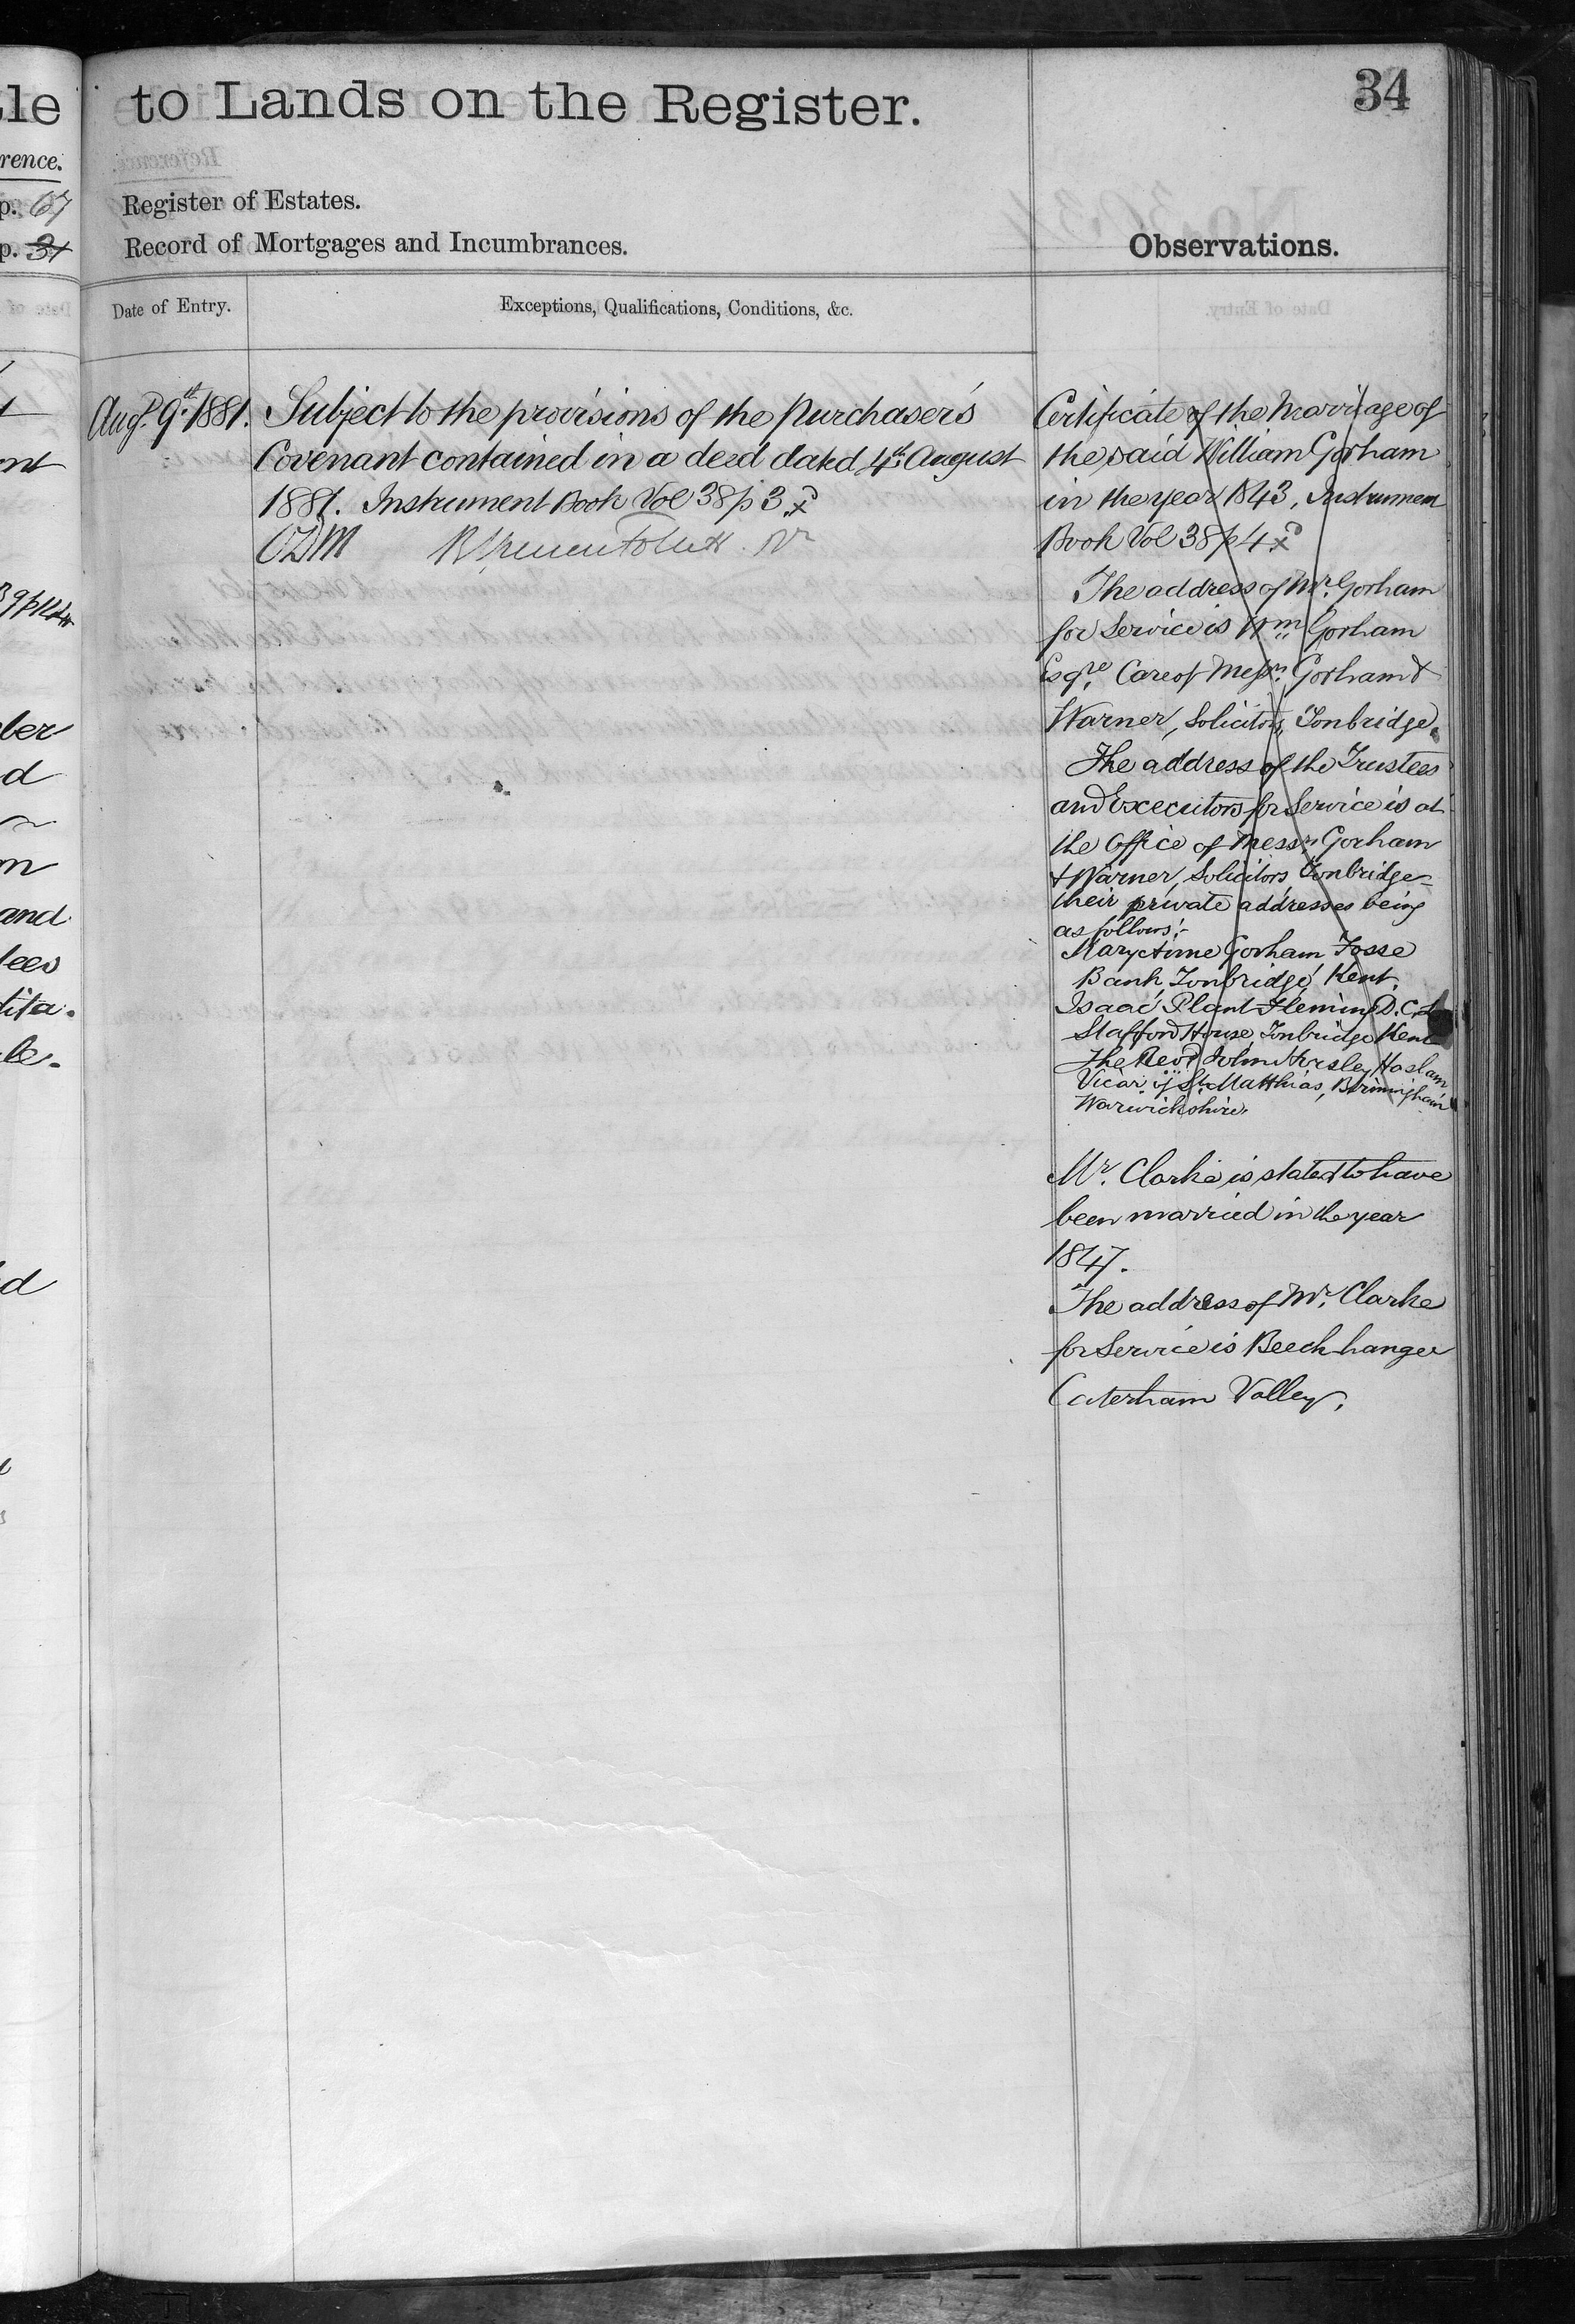 tle to Lands on the Register.
34
rence.
p. 67
Register of Estates.
p. 34
Record of Mortgages and Incumbrances.
Observations.
Date of Entry.
Exceptions, Qualifications, Conditions, &c.
Augt. 9th 1881.
Subject to the provisions of the Purchaser's
Covenant contained in a deed dated 4th August
1881. Instrument Book Vol 38 p 3
Certificate of the Marriage of
the said William Gorham
in the year 1843, Instrument
Book Vol 38 p 4
The address of Mr. Gorham
for Service is Wm Gorham
Esqre. Care of Messrs. Gorham &
Warner, Solicitors, Tonbridge.
The address of the Trustees
and Executors for Service is at
the Office of Messrs Gorham
& Warner, Solicitors, Tonbridge
their private addresses being
as follows:-
Mary Anne Gorham, Fosse
Bank, Tonbridge, Kent.
Isaac Plant Fleming D.C.L
Stafford House, Tonbridge Kent
The Revd. John Hersley Haslam
Vicar of St. Matthias, Birmingham
Warwickshire.
Mr. Clarke is stated to have
been married in the year
1847.
The address of Mr. Clarke
for Service is Beech hanger
Caterham Valley.
ber
d
m
and
tees
dita.
le.
d